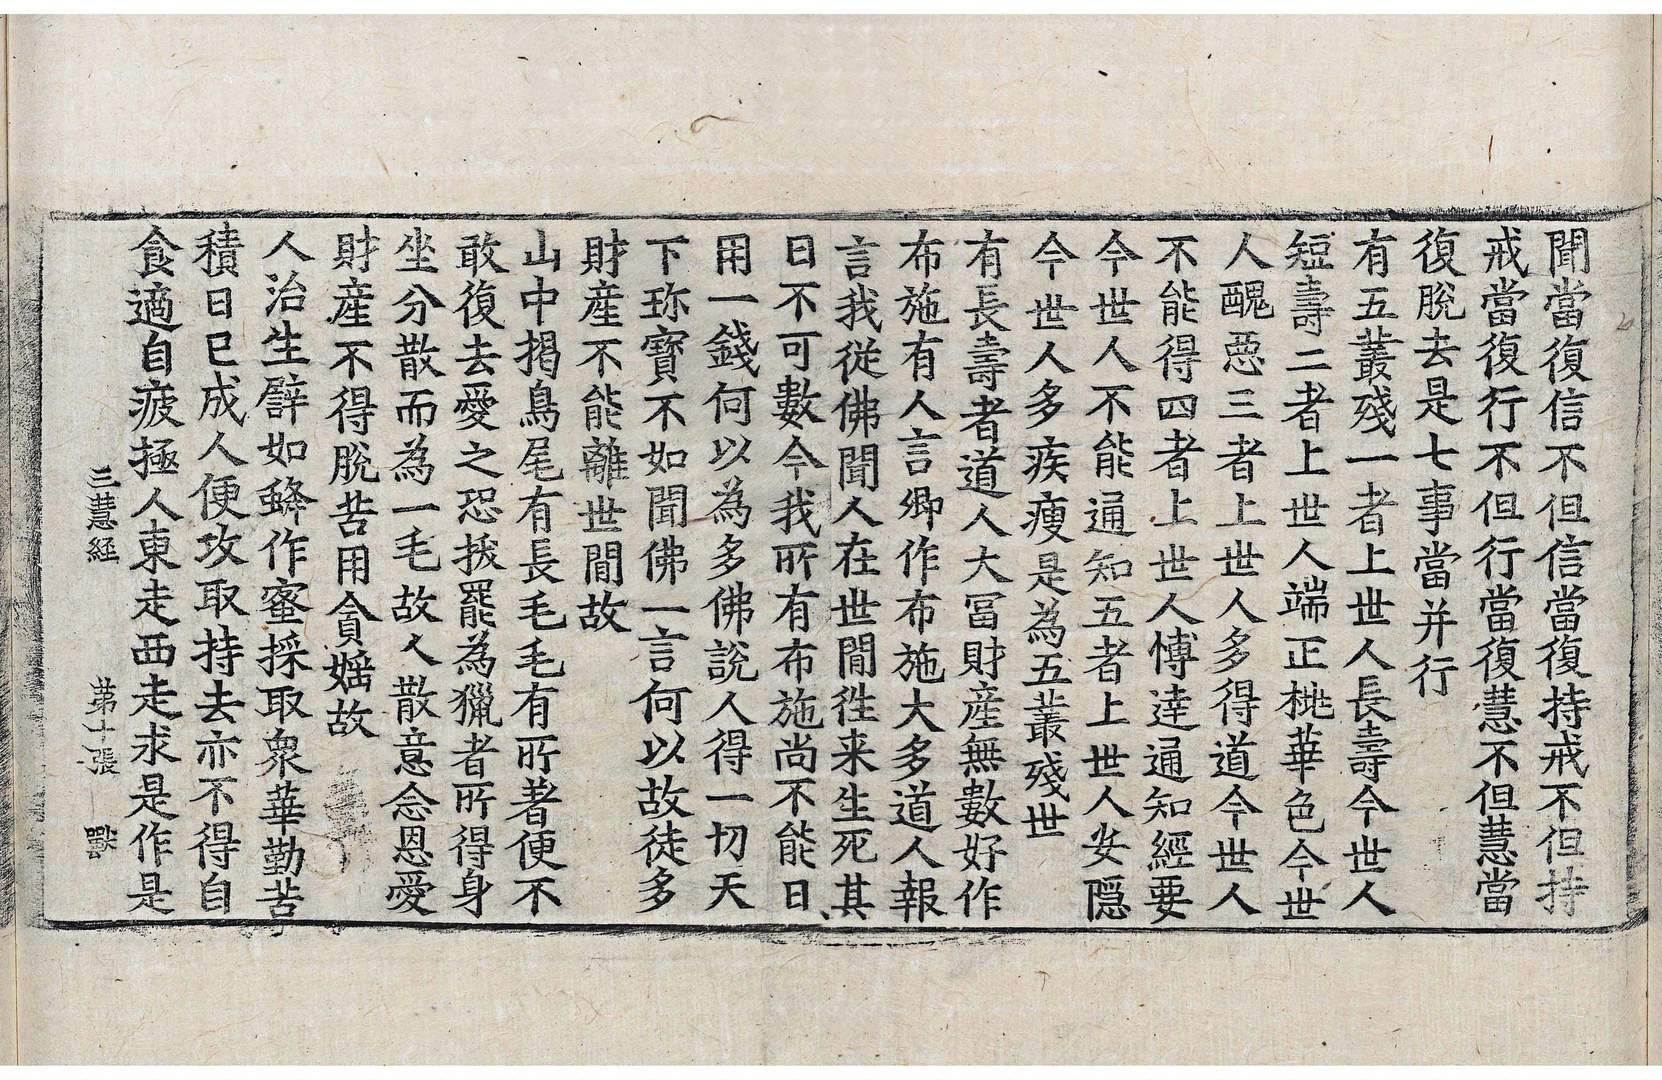 聞當復信不但信當復持戒不但持
戒當復行不但行當復慧不但慧當
復脫去是七事當并行
有五叢殘一者上世人長壽今世人
短壽二者上世人端正桃華色今世
人醜惡三者上世人多得道今世人
不能得四者上世人博達通知經要
今世人不能通知五者上世人安隱
今世人多疾瘦是為五叢殘世
有長壽者道人大冨財産無數好作
布施有人言卿作布施大多道人報
言我從佛聞人在世間徃来生死其
日不可數今我所有布施尚不能日
用一錢何以為多佛說人得一切天
下珎寳不如聞佛一言何以故徒多
財産不能離世間故
山中揭鳥尾有長毛毛有所著便不
敢復去愛之恐拔罷為獵者所得身
坐分散而為一毛故人散意念恩愛
財産不得脫苦用貪婬故
人治生譬如蜂作蜜採取衆華勤苦
積日已成人便攻取持去亦不得自
食適自疲極人東走西走求是作是
三慧經 第十張 獸